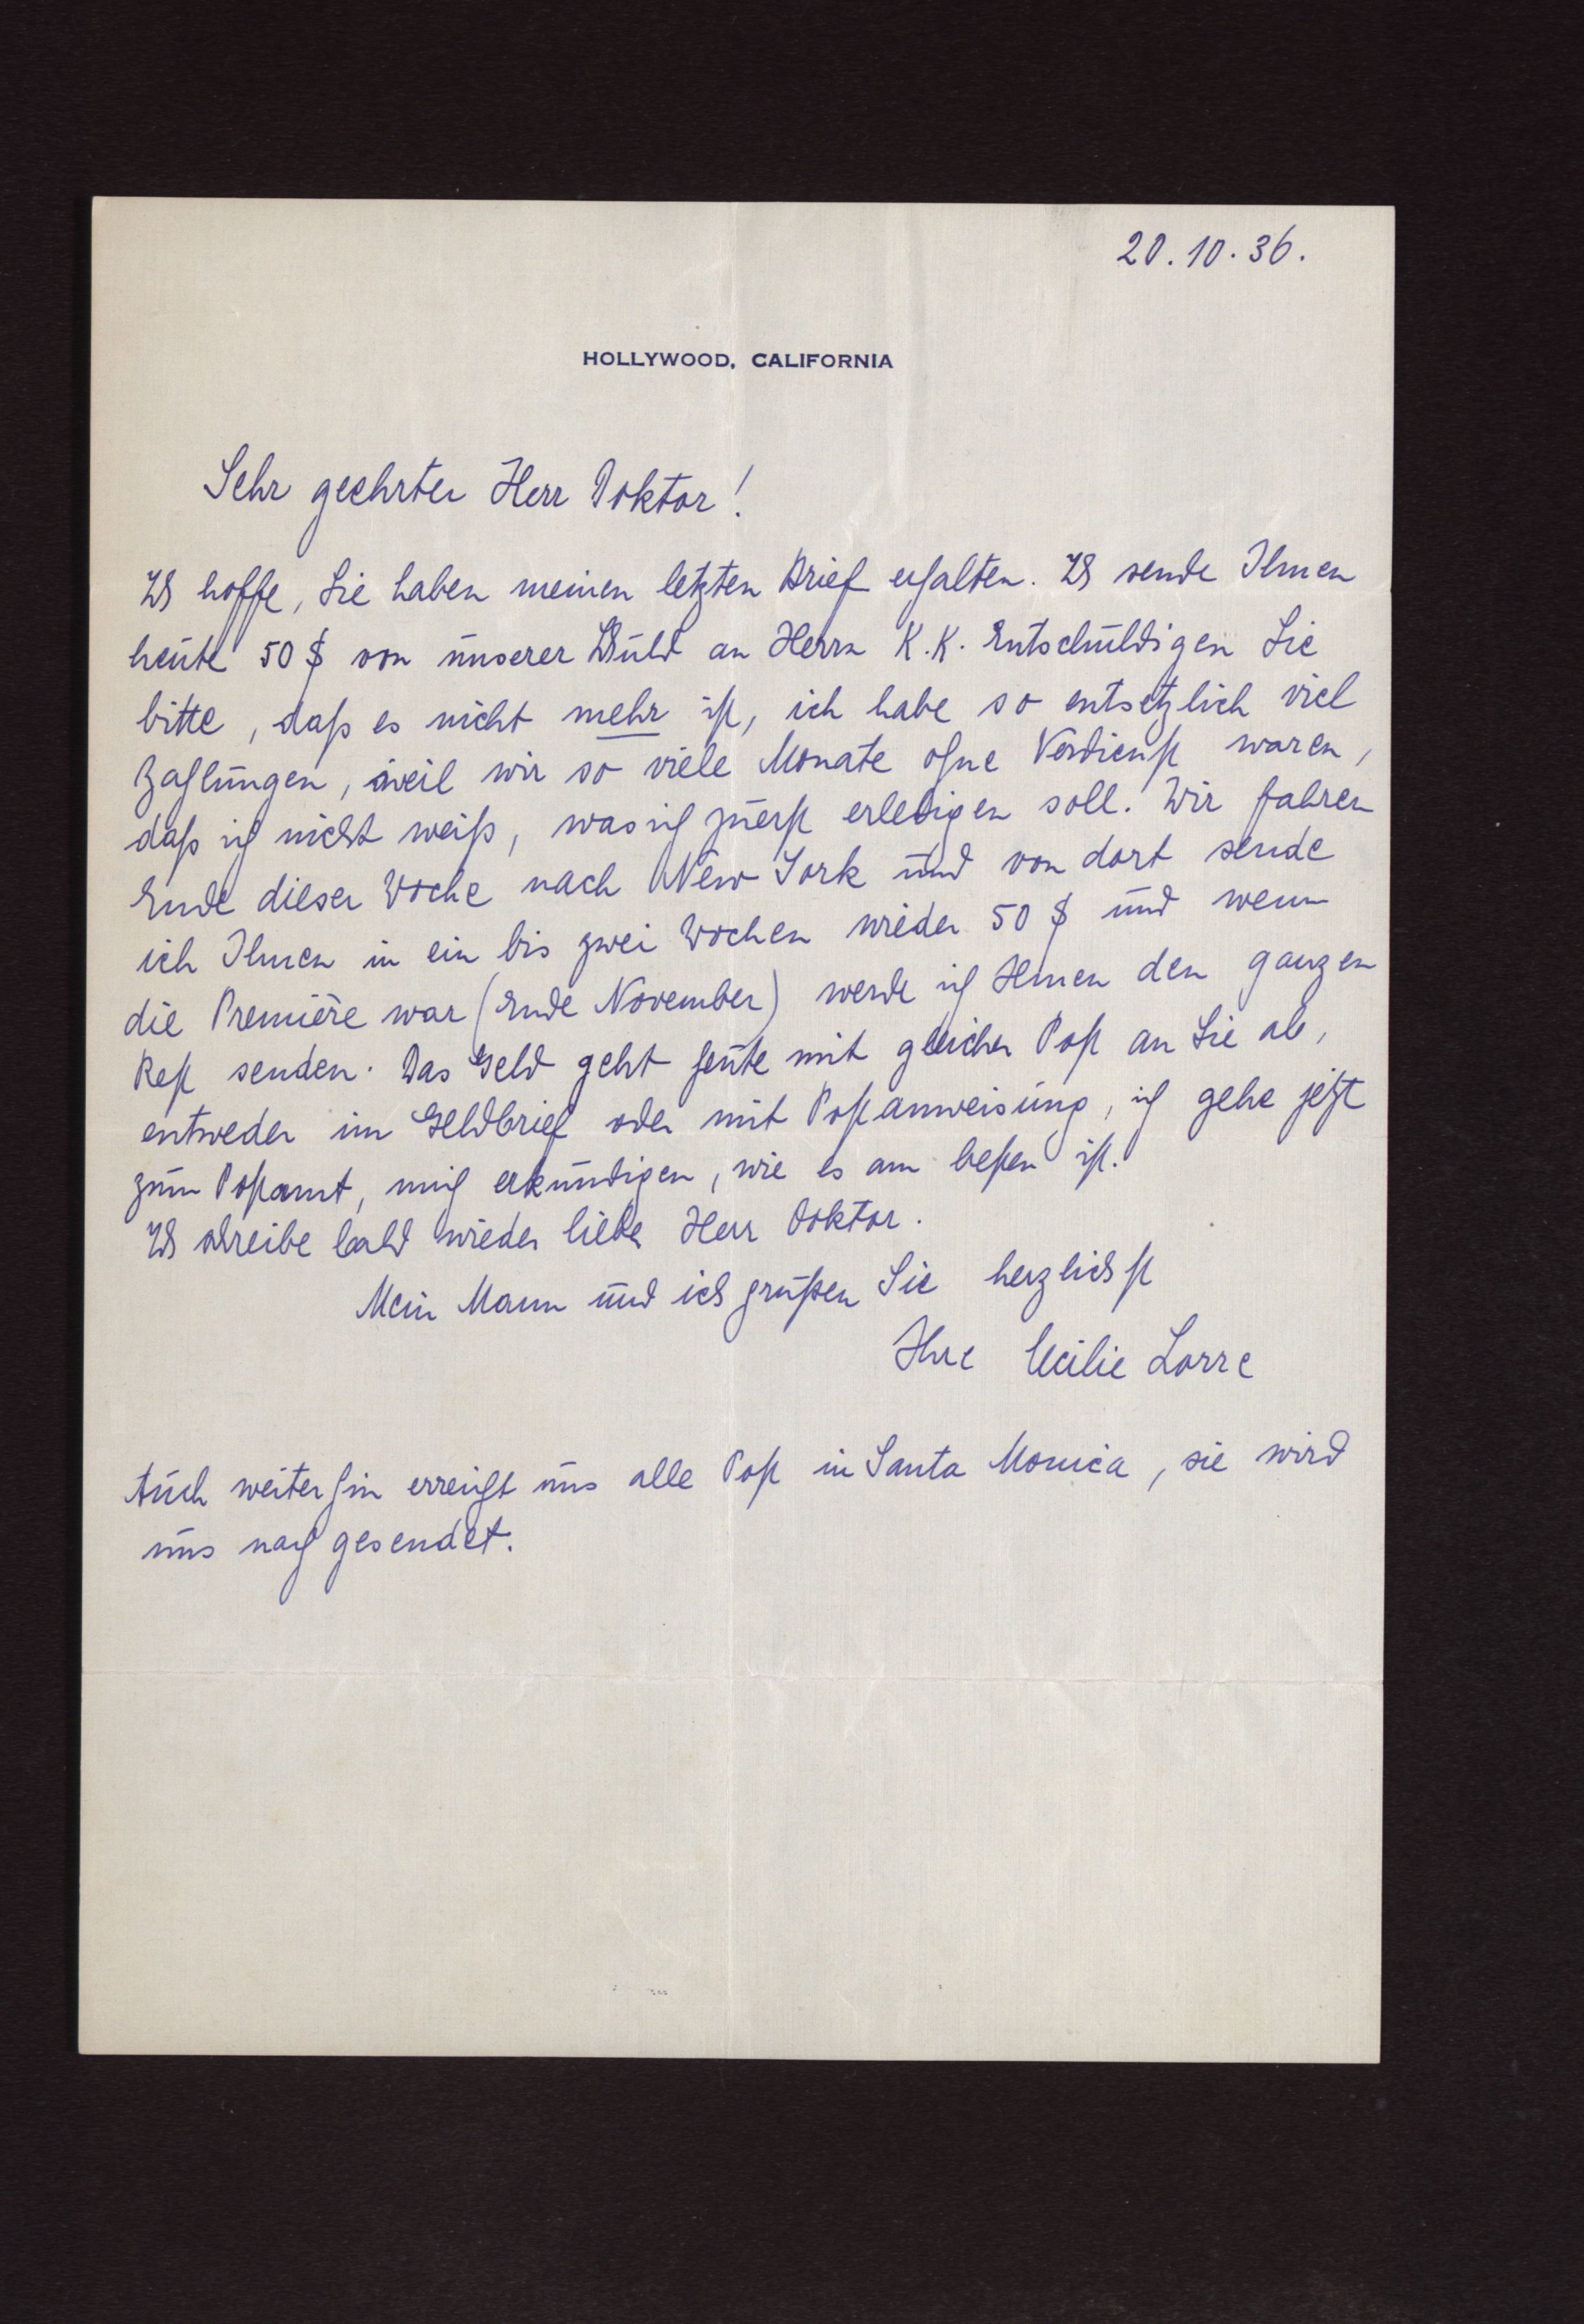 20.10.36.
HOLLYWOOD, CALIFORNIA
Sehr geehrter Herr Doktor!
Ich hoffe, Sie haben meinen letzten Brief erhalten. Ich sende Ihnen
heute 50 $ von unserer Schuld an Herrn K.K. Entschuldigen Sie
bitte, daß es nicht mehr ist, ich habe so entsetzlich viel
Zahlungen, weil wir so viele Monate ohne Verdienst waren,
daß ich nicht weiß, was ich zuerst erledigen soll. Wir fahren
Ende dieser Woche nach New York und von dort sende
ich Ihnen in ein bis zwei Wochen wieder 50 $ und wenn
die Première war (Ende November) werde ich Ihnen den ganzen
Rest senden. Das Geld geht heute mit gleicher Post an Sie ab,
entweder im Geldbrief oder mit Postanweisung, ich gehe jetzt
zum Postamt, mich erkundigen, wie es am besten ist.
Ich schreibe bald wieder lieber Herr Doktor.
Mein Mann und ich grüßen Sie herzlichst
Ihre Cecilie Lorre
Auch weiterhin erreicht uns alle Post in Santa Monica, sie wird
uns nachgesendet.